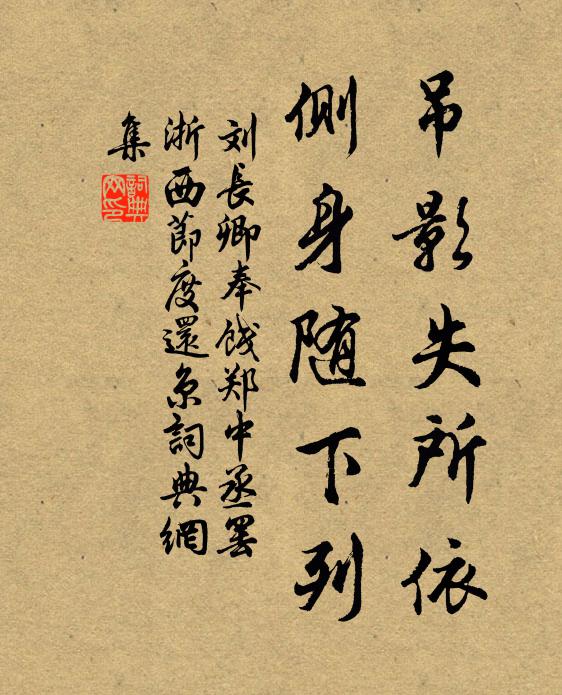 吊影失所依
侧身随下列
刘長卿奉餞郑中丞罢
浙西節度還京詞典網
集
詞典
网印